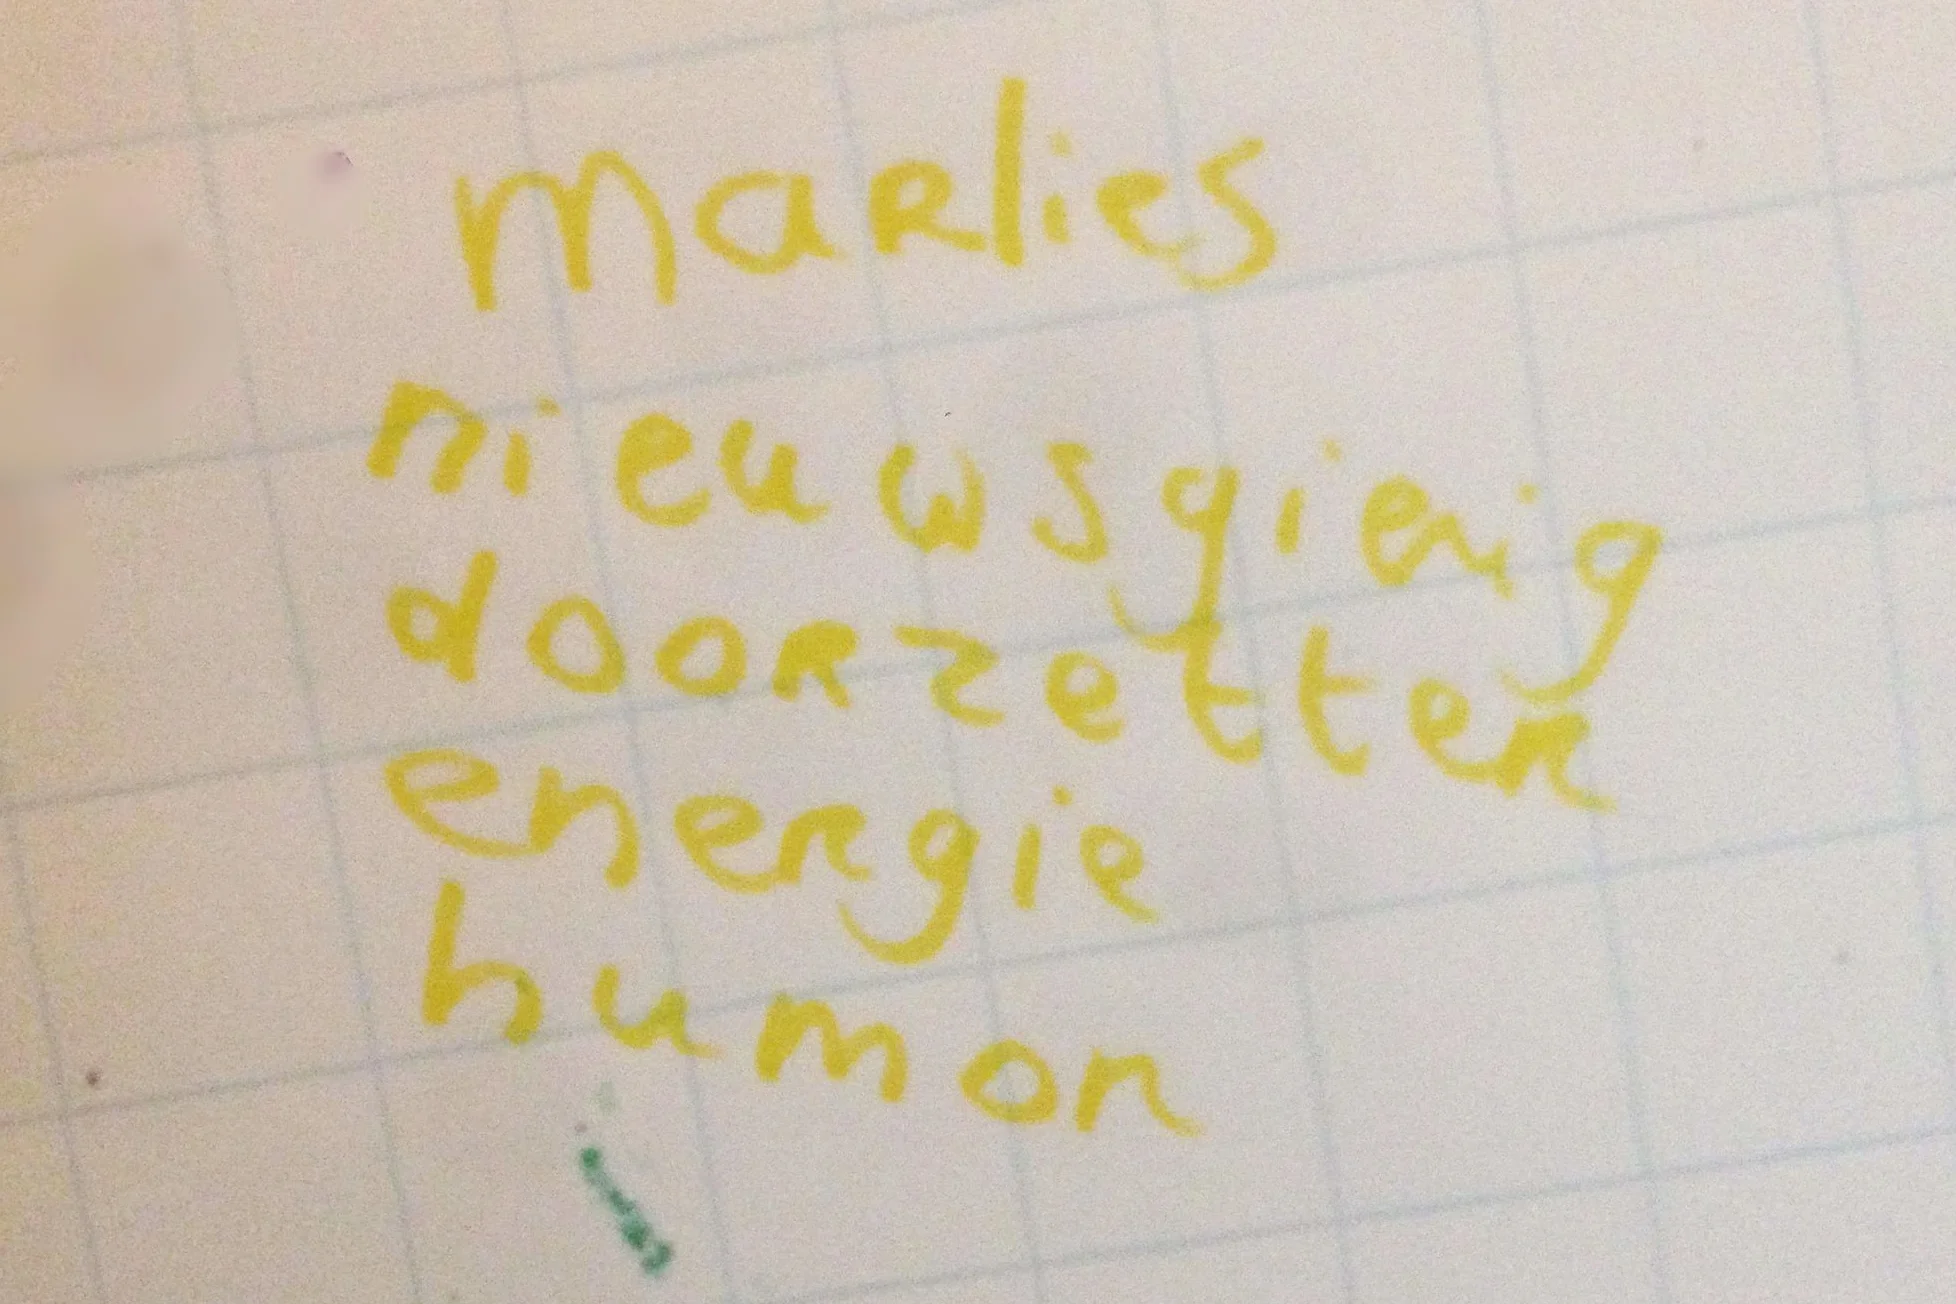 Marlies
nieuwsgierig
doorzetter
energie
humor